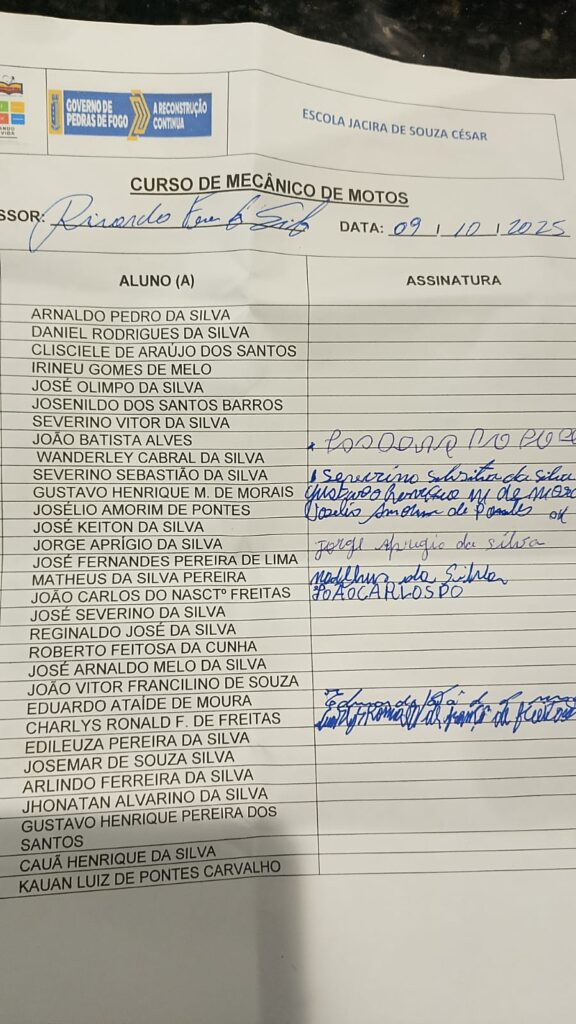 ANDO
VIDA
GOVERNO DE
PEDRAS DE FOGO
A RECONSTRUÇÃO
CONTINUA
ESCOLA JACIRA DE SOUZA CÉSAR
CURSO DE MECÂNICO DE MOTOS
SSOR: Ricardo
DATA: 09 / 10 / 2025
ALUNO (A) ASSINATURA
ARNALDO PEDRO DA SILVA
DANIEL RODRIGUES DA SILVA
CLISCIELE DE ARAÚJO DOS SANTOS
IRINEU GOMES DE MELO
JOSÉ OLIMPO DA SILVA
JOSENILDO DOS SANTOS BARROS
SEVERINO VITOR DA SILVA
JOÃO BATISTA ALVES
WANDERLEY CABRAL DA SILVA
SEVERINO SEBASTIÃO DA SILVA severino da silva
GUSTAVO HENRIQUE M. DE MORAIS Gustavo henrique m de
JOSÉLIO AMORIM DE PONTES Joselio Amorim de Pontes
JOSÉ KEITON DA SILVA
JORGE APRÍGIO DA SILVA jorge Aprigio da silva
JOSÉ FERNANDES PEREIRA DE LIMA
MATHEUS DA SILVA PEREIRA da Silva
JOÃO CARLOS DO NASCTº FREITAS JOÃOCARLOSDO
JOSÉ SEVERINO DA SILVA
REGINALDO JOSÉ DA SILVA
ROBERTO FEITOSA DA CUNHA
JOSÉ ARNALDO MELO DA SILVA
JOÃO VITOR FRANCILINO DE SOUZA
EDUARDO ATAÍDE DE MOURA
CHARLYS RONALD F. DE FREITAS
EDILEUZA PEREIRA DA SILVA
JOSEMAR DE SOUZA SILVA
ARLINDO FERREIRA DA SILVA
JHONATAN ALVARINO DA SILVA
GUSTAVO HENRIQUE PEREIRA DOS
SANTOS
CAUÃ HENRIQUE DA SILVA
KAUAN LUIZ DE PONTES CARVALHO